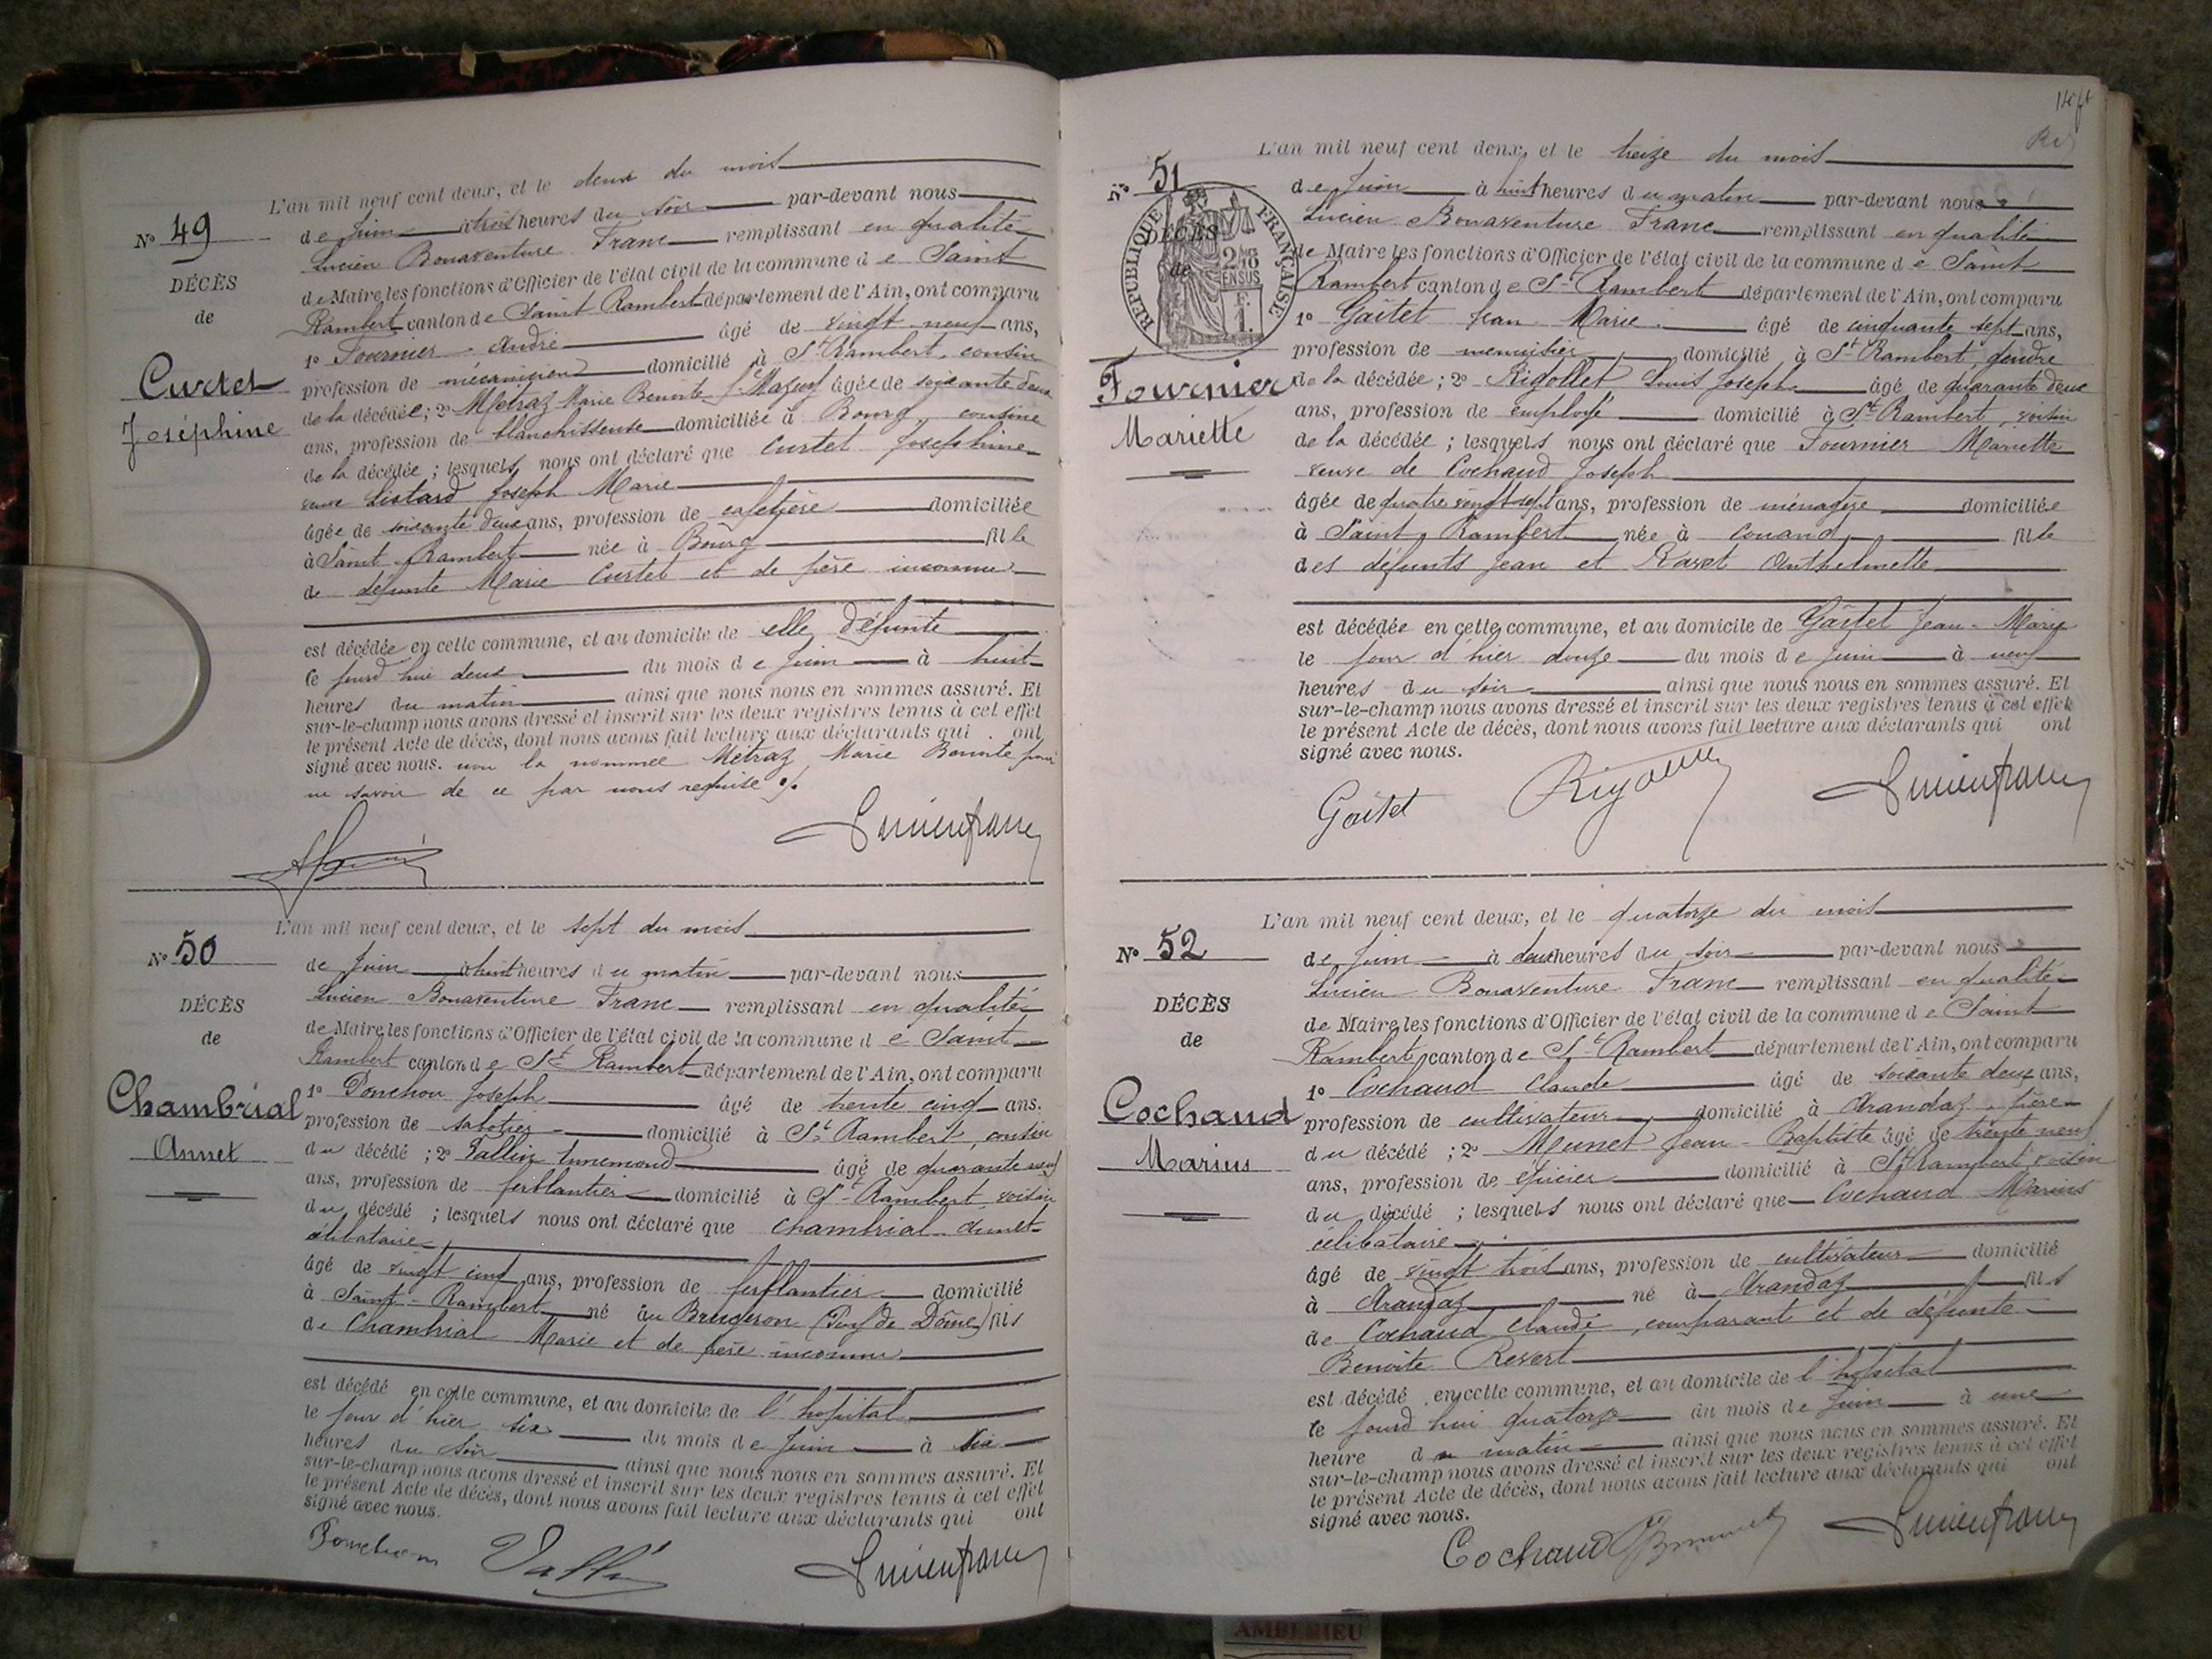 L'an mil neuf cent deux, et le deux du mois
N° 49
de Juin à trois heures du soir par-devant nous
Lucien Bonaventure Franc remplissant en qualité
DÉCÈS
de Maire les fonctions d'Officier de l'état civil de la commune de Saint
de
Rambert canton de Saint Rambert département de l'Ain, ont comparu
1° Fournier André âgé de vingt neuf ans,
Curtet
profession de mécanicien domicilié à St Rambert, cousin
Joséphine
de la décédée; 2° Métraz Marie Benoite âgée de soixante deux
ans, profession de blanchisseuse domiciliée à Bourg, cousine
de la décédée; lesquels nous ont déclaré que Curtet Joséphine
veuve Listard Joseph Marie
âgée de soixante deux ans, profession de cafetière domiciliée
à Saint Rambert née à Bourg fille
de défunte Marie Curtet et de père inconnu
est décédée en cette commune, et au domicile de elle défunte
le jourd'hui deux du mois de Juin à huit
heures du matin ainsi que nous nous en sommes assuré. Et
sur-le-champ nous avons dressé et inscrit sur les deux registres tenus à cet effet
le présent Acte de décès, dont nous avons fait lecture aux déclarants qui ont
signé avec nous. non la nommée Métraz Marie Benoite pour
ne savoir de ce par nous requise ./.
Lucien franc
L'an mil neuf cent deux, et le sept du mois
N° 50
de Juin à huit heures du matin par-devant nous
Lucien Bonaventure Franc remplissant en qualité
DÉCÈS
de Maire les fonctions d'Officier de l'état civil de la commune de Saint
de
Rambert canton de St Rambert département de l'Ain, ont comparu
Chambrial
1° Ponchon Joseph âgé de trente cinq ans.
profession de sabotier domicilié à St Rambert, cousin
Annet
du décédé; 2° Vallin Ennemond âgé de quarante neuf
ans, profession de ferblantier domicilié à St Rambert, voisin
du décédé; lesquels nous ont déclaré que Chambrial Annet
célibataire
âgé de vingt cinq ans, profession de ferblantier domicilié
à Saint-Rambert né au Brugeron (Puy de Dôme) fils
de Chambrial Marie et de père inconnu
est décédé en cette commune, et au domicile de l'hopital
le jour d'hier six du mois de Juin à six
heures du soir ainsi que nous nous en sommes assuré. Et
sur-le-champ nous avons dressé et inscrit sur les deux registres tenus à cet effet
le présent Acte de décès, dont nous avons fait lecture aux déclarants qui ont
signé avec nous.
Ponchon Vallin Lucien franc
L'an mil neuf cent deux, et le treize du mois
N° 51
de Juin à huit heures du matin par-devant nous
Lucien Bonaventure Franc remplissant en qualité
RÉPUBLIQUE FRANÇAISE
DÉCÈS
2/10 EN SUS
de Maire les fonctions d'Officier de l'état civil de la commune de Saint
de
Rambert canton de St Rambert département de l'Ain, ont comparu
1° Gaîtet Jean Marie âgé de cinquante sept ans,
profession de menuisier domicilié à St Rambert, gendre
Fournier
de la décédée; 2° Rigollet Louis Joseph âgé de quarante deux
ans, profession de employé domicilié à St Rambert, voisin
Mariette
de la décédée; lesquels nous ont déclaré que Fournier Mariette
veuve de Cochaud Joseph
âgée de quatre vingt sept ans, profession de ménagère domiciliée
à Saint Rambert née à Conand fille
des défunts Jean et Ravet Anthelmette
est décédée en cette commune, et au domicile de Gaîtet Jean-Marie
le jour d'hier douze du mois de Juin à neuf
heures du soir ainsi que nous nous en sommes assuré. Et
sur-le-champ nous avons dressé et inscrit sur les deux registres tenus à cet effet
le présent Acte de décès, dont nous avons fait lecture aux déclarants qui ont
signé avec nous.
Gaîtet Lucien franc
L'an mil neuf cent deux, et le quatorze du mois
N° 52
de Juin à deux heures du soir par-devant nous
Lucien Bonaventure Franc remplissant en qualité
DÉCÈS
de Maire les fonctions d'Officier de l'état civil de la commune de Saint
de
Rambert canton de St Rambert département de l'Ain, ont comparu
1° Cochaud Claude âgé de soixante deux ans,
Cochaud
profession de cultivateur domicilié à Arandaz, père
Marius
du décédé; 2° Munet Jean-Baptiste âgé de trente neuf
ans, profession de épicier domicilié à St Rambert voisin
du décédé; lesquels nous ont déclaré que Cochaud Marius
célibataire
âgé de vingt trois ans, profession de cultivateur domicilié
à Arandaz né à Arandaz fils
de Cochaud Claude, comparant et de défunte
Benoite Revert
est décédé en cette commune, et au domicile de l'hopital
le jourd'hui quatorze du mois de Juin à une
heure du matin ainsi que nous nous en sommes assuré. Et
sur-le-champ nous avons dressé et inscrit sur les deux registres tenus à cet effet
le présent Acte de décès, dont nous avons fait lecture aux déclarants qui ont
signé avec nous.
Cochaud Lucien franc
AMBERIEU